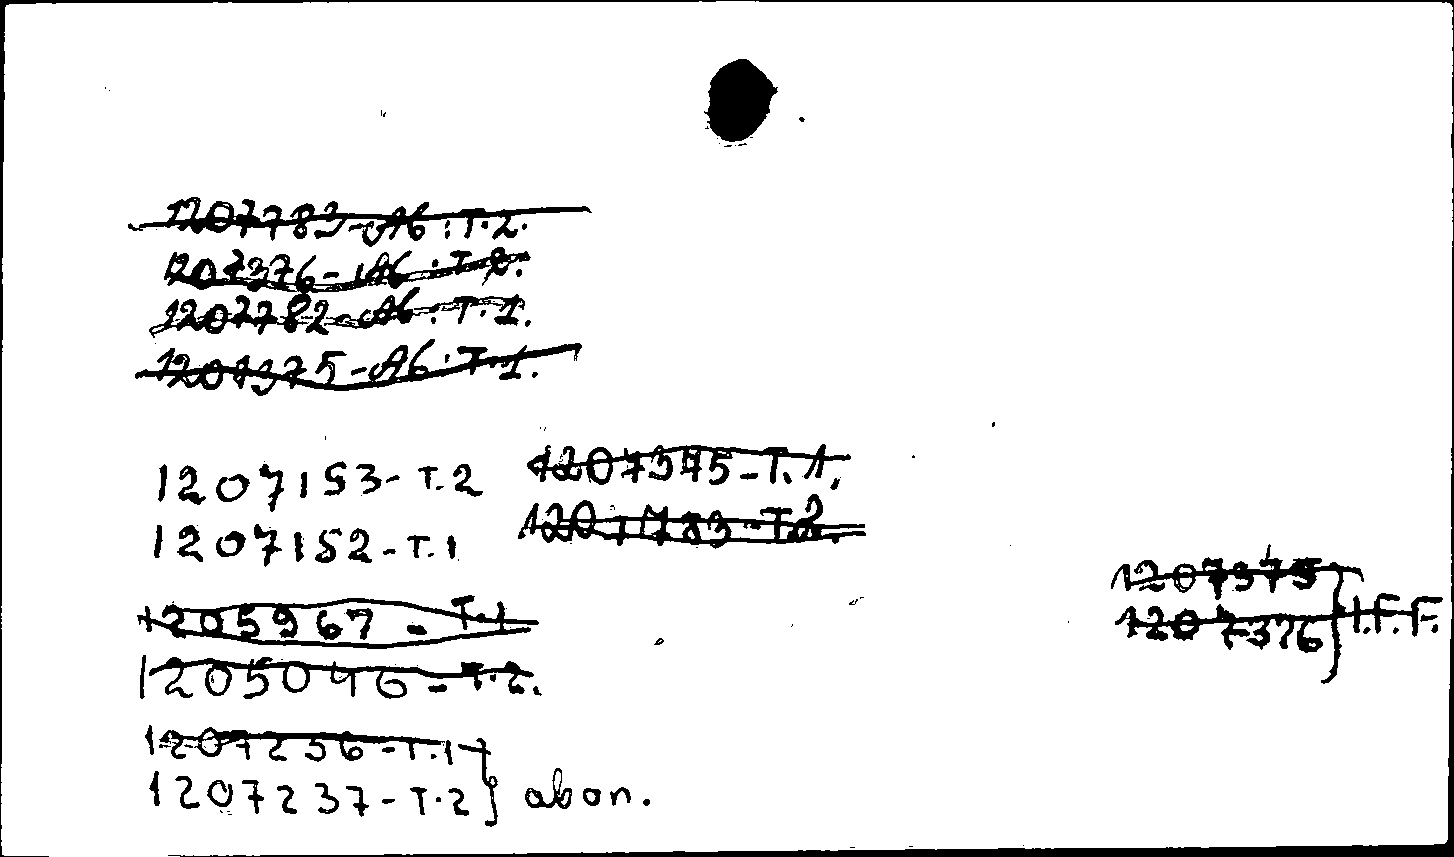 1207783-A6:T.2.
1207376-A6:T.2.
1207782-A6:T.1.
1207375-A6:T.1.
1207153-T.2 1207375-T.1.
1207152-T.1 1207783-T.2.
1205967-T.1
1205046-T.2.
1207236-T.1
1207237-T.2} abon.
1207375
1207376} I.F.F.